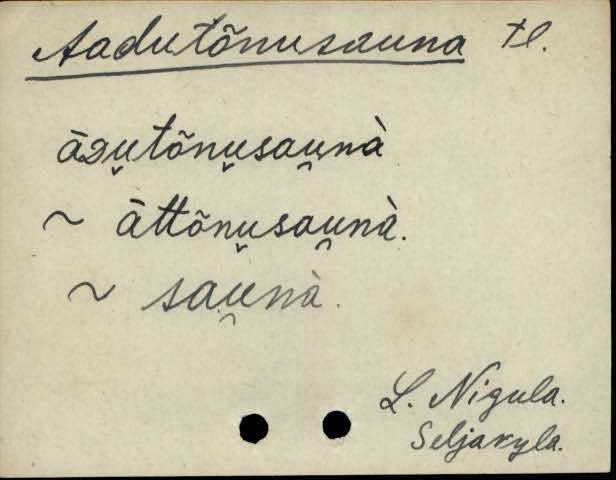 Aadutõnusauna tl.
āᴅu̬tõnu̬sau̯nà
~ āttõnu̬sau̯nà.
~ sau̯nà.
L. Nigula.
Seljakyla.